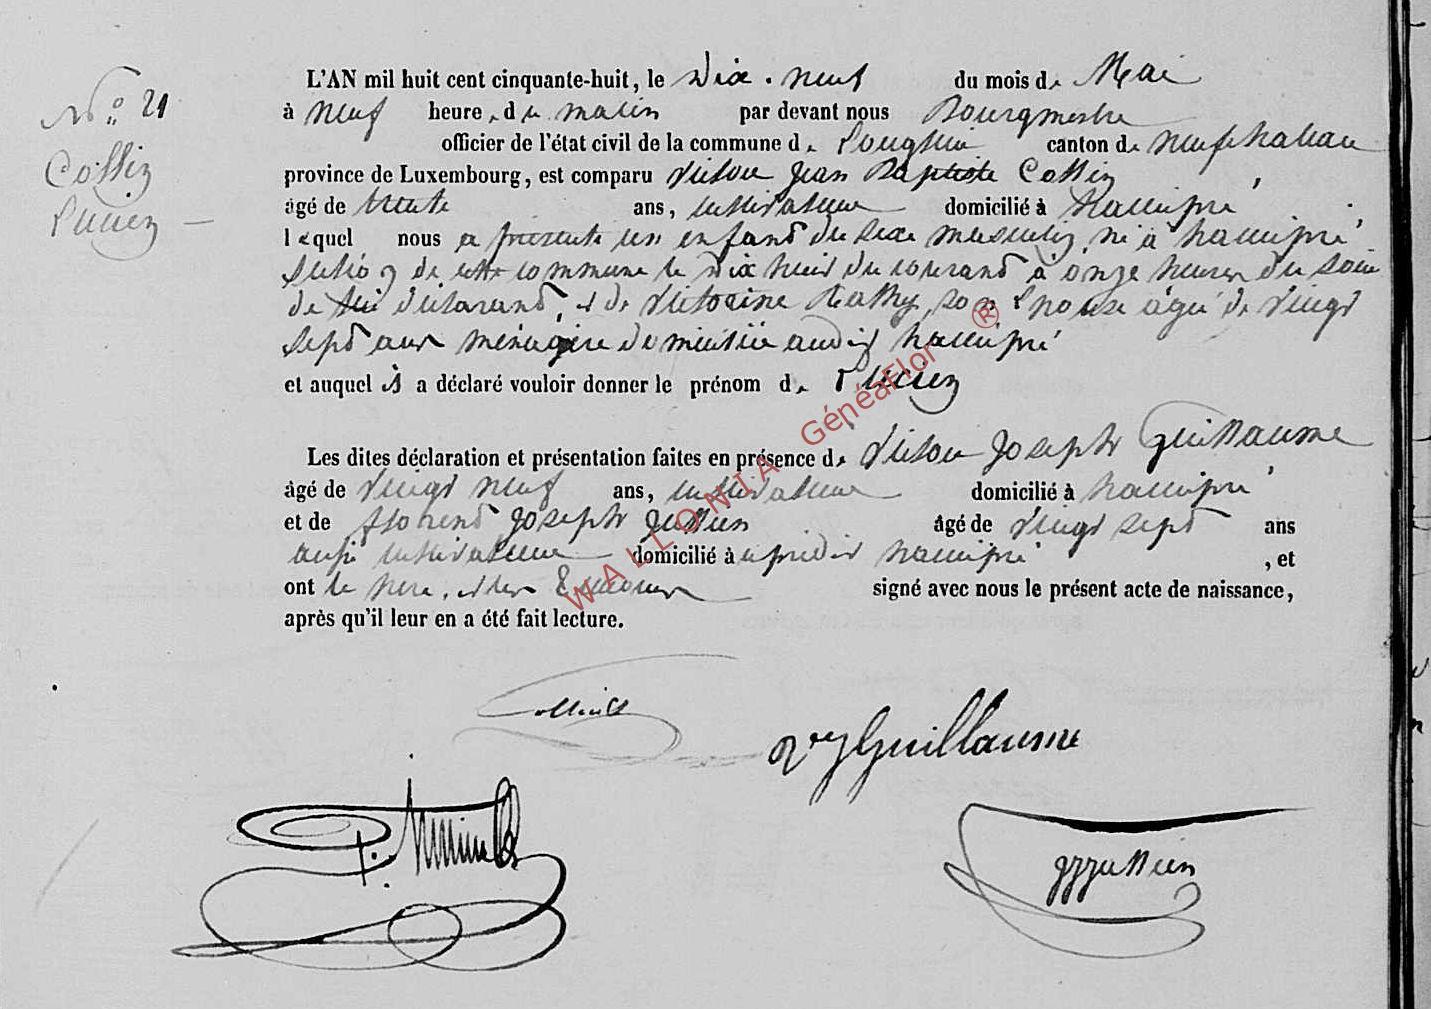 N° 21
Collin
Lucien
L'AN mil huit cent cinquante-huit, le dix-neuf du mois de Mai
à neuf heures du matin par devant nous Bourgmestre
officier de l'état civil de la commune de Longlier canton de Neufchateau
province de Luxembourg, est comparu Victor Jean Baptiste Collin
âgé de trente ans, cultivateur domicilié à Hamipré
lequel nous a présenté un enfant du sexe masculin né à hamipré
section de cette commune le dix huit du courant à onze heures du soir
de lui déclarant, et de Victorine Mathy, son Epouse agée de vingt
sept ans ménagère domiciliée audit hamipré
et auquel il a déclaré vouloir donner le prénom de Lucien
Les dites déclaration et présentation faites en présence de Victor Joseph Guillaume
âgé de vingt neuf ans, cultivateur domicilié à hamipré
et de florent Joseph Jullien âgé de vingt sept ans
aussi cultivateur domicilié à hamipré, et
ont le père, et les témoins signé avec nous le présent acte de naissance,
après qu'il leur en a été fait lecture.
WALLONIA GénéaFlor ®
Collin
vj Guillaume
Jullien